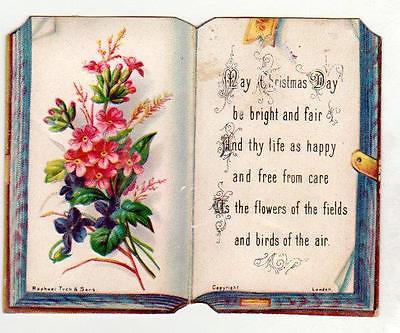 May Christmas Day
be bright and fair
And thy life as happy
and free from care
As the flowers of the fields
and birds of the air.
Raphael Tuck & Sons.
Copyright
London.